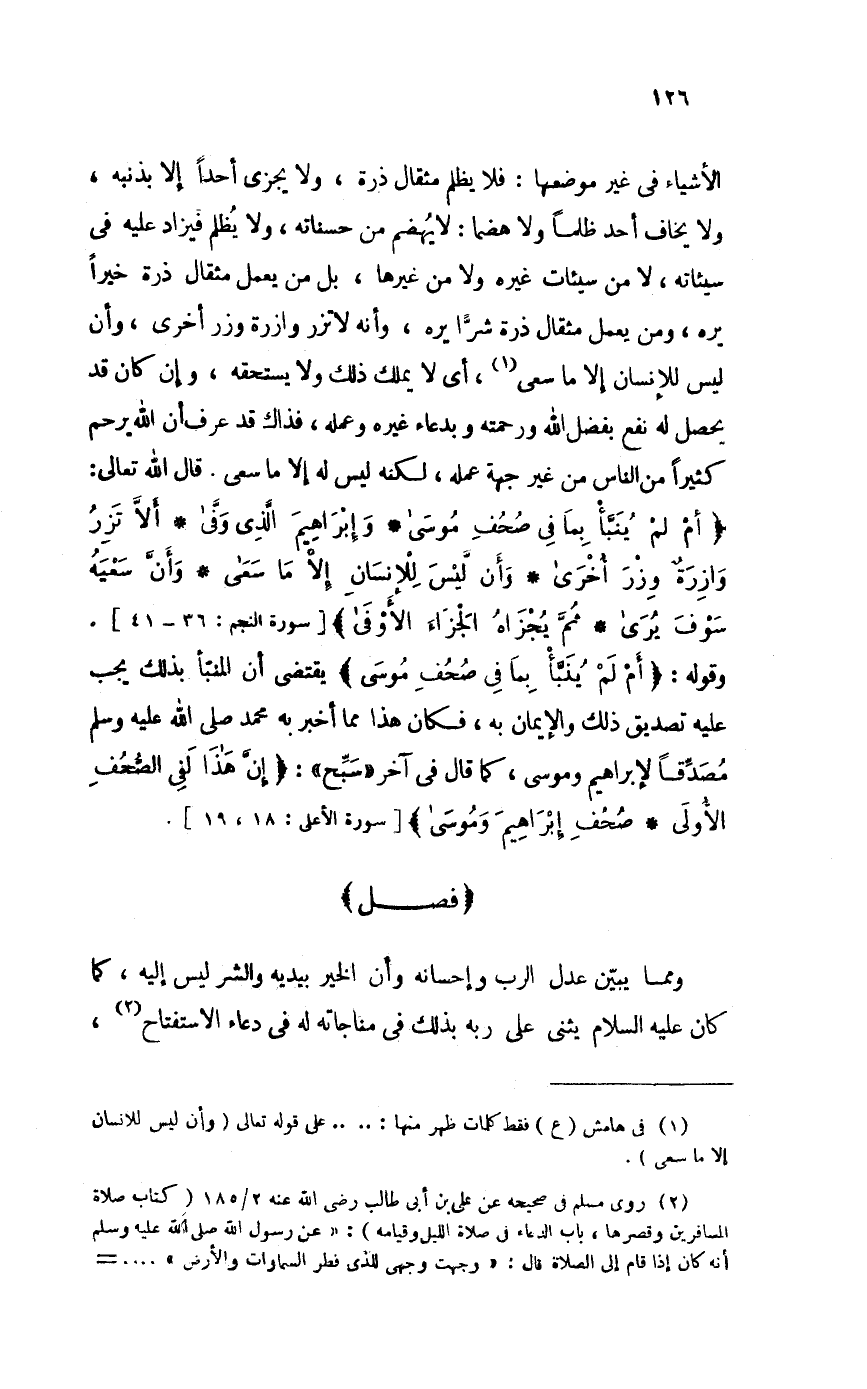 ١٢٦
الأشياء فى غير موضعها : فلا يظلم مثقال ذرة ، ولا يجزى أحداً إلا بذنبه ،
ولا يخاف أحد ظلمـاً ولا هضما : لايُهضم من حسناته ، ولا يُظلم فيزاد عليه فى
سيئاته ، لا من سيئات غيره ولا من غيرها ، بل من يعمل مثقال ذرة خيراً
يره ، ومن يعمل مثقال ذرة شرًّا يره ، وأنه لاتزر وازرة وزر أخرى ، وأن
ليس للإنسان إلا ما سعى(١) ، أى لا يملك ذلك ولا يستحقه ، وإن كان قد
يحصل له نفع بفضل الله ورحمته وبدعاء غيره وعمله ، فذاك قد عرف أن الله يرحم
كثيراً من الناس من غير جهة عمله ، لـكنه ليس له إلا ما سعى . قال الله تعالى:
﴿ أَمْ لمْ يُنَبَّأْ بِمَا فِى صُحُفِ مُوسَىٰ * وَإِبْرَاهِيمَ الَّذِى وَفَّىٰ * أَلاَّ تَزِرُ
وَازِرَةٌ وِزْرَ أُخْرَىٰ * وَأَن لَّيْسَ لِلْإِنسَانِ إِلاَّ مَا سَعَىٰ * وَأَنَّ سَعْيَهُ
سَوْفَ يُرَىٰ * ثُمَّ يُجْزَاهُ الجْزَاءَ الأَوْفَىٰ ﴾ [ سورة النجم : ٣٦ – ٤١ ] .
وقوله : ﴿ أَمْ لَمْ يُنَبَّأْ بِمَا فِى صُحُفِ مُوسَى ﴾ يقتضى أن المنبّأ بذلك يجب
عليه تصديق ذلك والإيمان به ، فـكان هذا مما أخبر به محمد صلى الله عليه وسلم
مُصَدِّقـاً لإبراهيم وموسى ، كما قال فى آخر «سَبِّح» : ﴿ إِنَّ هَٰذَا لَفِى الصُّحُفِ
الأُولَى * صُحُفِ إِبْرَاهِيمَ وَمُوسَىٰ ﴾ [ سورة الأعلى : ١٨ ، ١٩ ] .
﴿ فصـــــل ﴾
وممـا يبيّن عدل الرب وإحسانه وأن الخير بيديه والشر ليس إليه ، كما
كان عليه السلام يثنى على ربه بذلك فى مناجاته له فى دعاء الاستفتاح(٢) ،
(١) فى هامش ( ع ) فقط كلمات ظهر منها : .. .. على قوله تعالى ( وأن ليس للانسان
إلا ما سعى ) .
(٢) روى مسلم فى صحيحه عن على بن أبى طالب رضى الله عنه ١٨٥/٢ ( كتاب صلاة
المسافرين وقصرها ، باب الدعاء فى صلاة الليل وقيامه ) : « عن رسول الله صلى الله عليه وسلم
أنه كان إذا قام إلى الصلاة قال : « وجهت وجهى للذى فطر السماوات والأرض » .... =